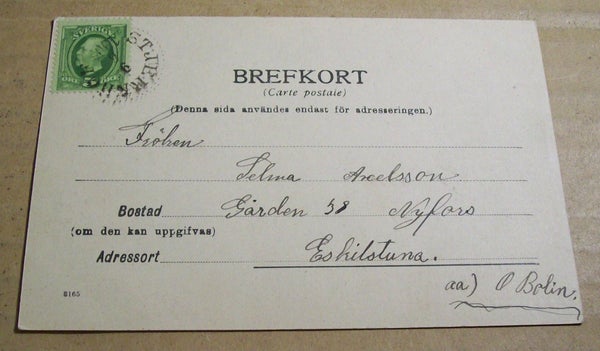 SVERIGE
5 ÖRE
STJERN
BREFKORT
(Carte postale)
(Denna sida användes endast för adresseringen.)
Fröken
Selma Axelsson
Bostad Gården 38 Nyfors
(om den kan uppgifvas)
Adressort Eskilstuna.
aa) O Bolin.
8165